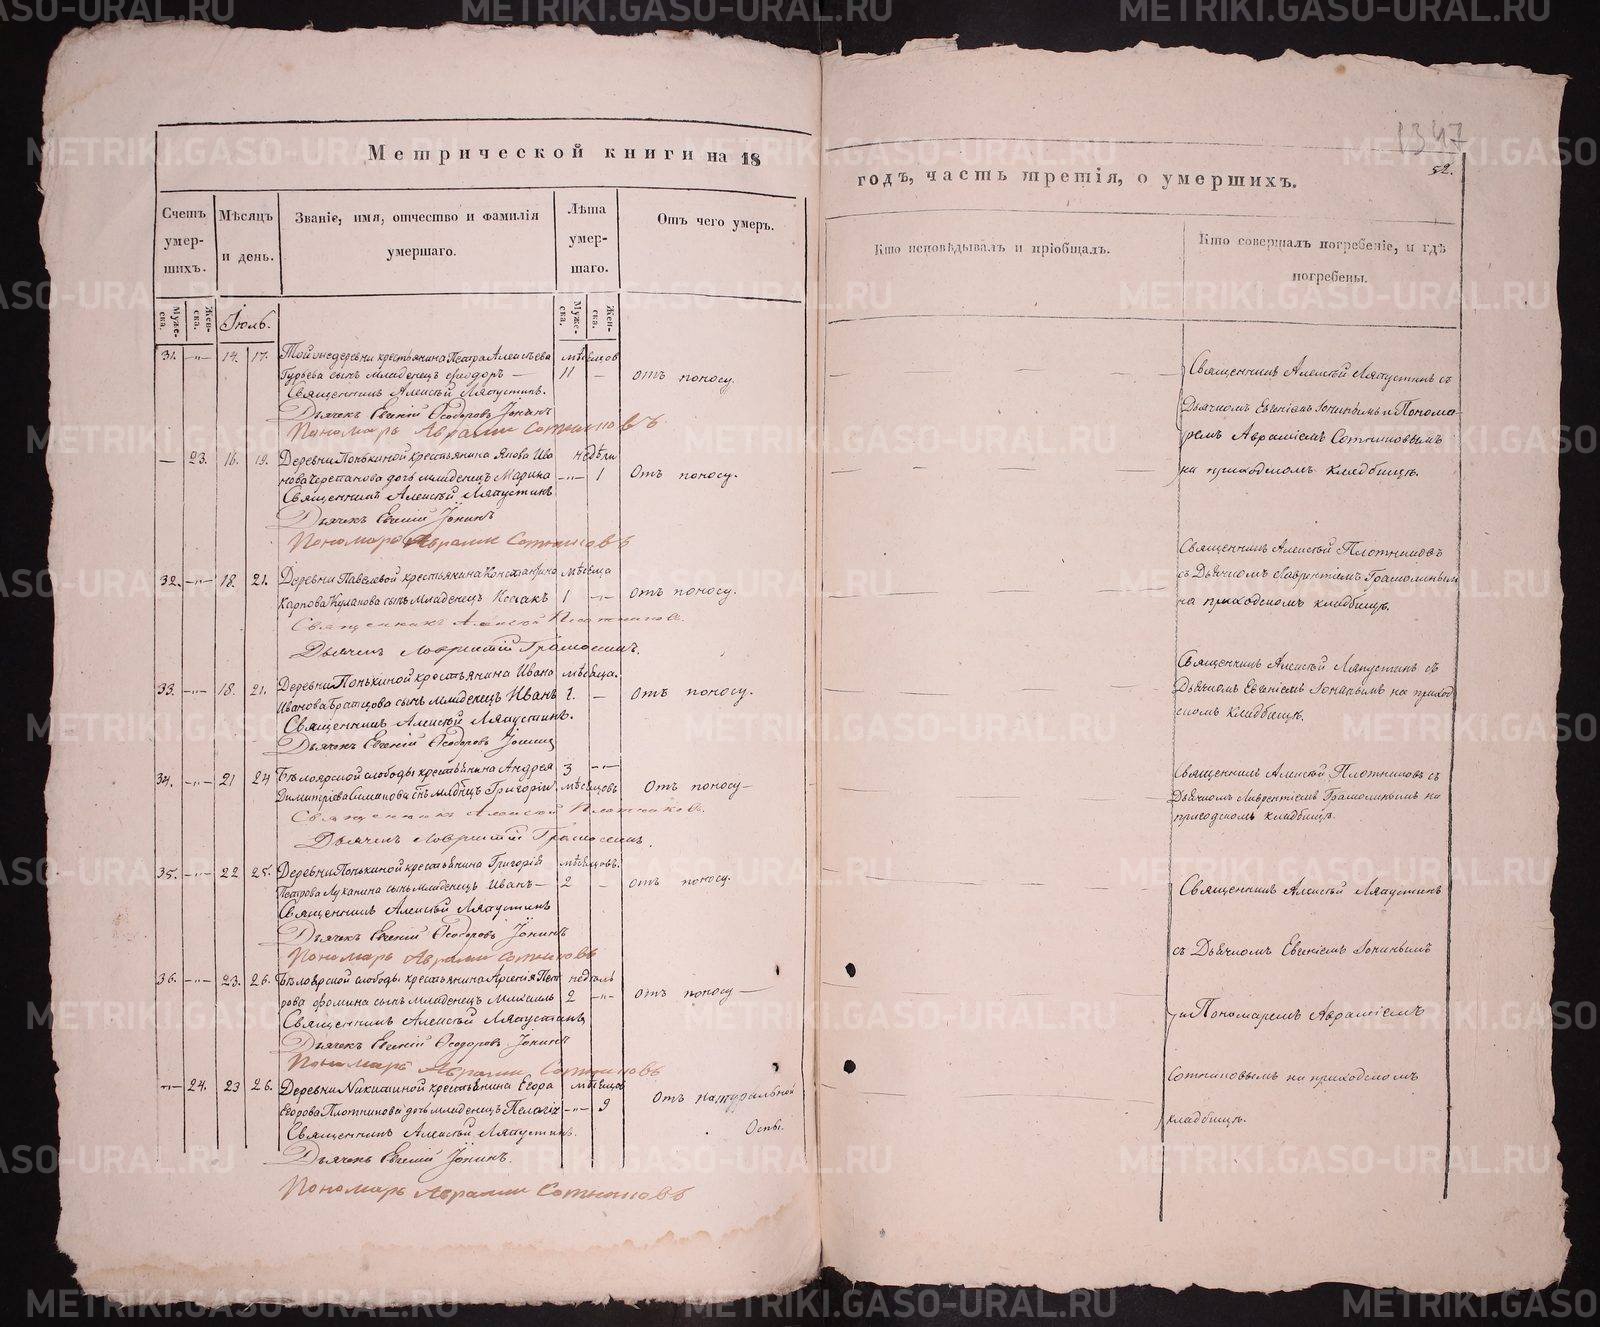 Метрической книги на 18
Счетъ умер- шихъ.
Мѣсяцъ и день.
Званіе, имя, отчество и фамилія умершаго.
Лѣта умер- шаго.
Отъ чего умеръ.
Муже- ска.
Жен- ска.
Іюль.
Муже- ска.
Жен- ска.
31. -"- 14. 17. Той же деревни крестьянина Петра Алексѣева мѣсяцов
Гурьева сынъ младенецъ Ѳеодоръ — 11 — отъ поносу.
Священникъ Алексѣй Ляпустинъ.
Дьячекъ Евгеній Ѳеодоровъ Іонинъ
Пономарь Аврамій Сотниковъ
— 23. 16. 19. Деревни Понькиной крестьянина Якова Ива недѣли
нова Черепанова дочь младенецъ Марина -"- 1 Отъ поносу.
Священникъ Алексѣй Ляпустинъ
Дьячекъ Евгеній Іонинъ
Пономарь Аврамій Сотниковъ
32. -"- 18. 21. Деревни Павелевой крестьянина Константина мѣсяца
Карпова Кулакова сынъ младенецъ Исаакъ 1 -"- Отъ поносу.
Священникъ Алексѣй Плотниковъ.
Дьячекъ Лаврентій Грамолинъ.
33. -"- 18. 21. Деревни Понькиной крестьянина Ивана мѣсяца.
Иванова Братцова сынъ младенецъ Иванъ 1. — Отъ поносу.
Священникъ Алексѣй Ляпустинъ.
Дьячекъ Евгеній Ѳеодоровъ Іонинъ
34. -"- 21 24 Бѣлоярской слободы крестьянина Андрея 3 -"-
Димитріева Симанова сынъ младенецъ Григорій мѣсяцовъ Отъ поносу—
Священникъ Алексѣй Плотниковъ.
Дьячекъ Лаврентій Грамолинъ.
35. -"- 22 25. Деревни Понькиной крестьянина Григорія мѣсяцовъ.
Петрова Луханина сынъ младенецъ Иванъ— 2 - отъ поносу.
Священникъ Алексѣй Ляпустинъ
Дьячекъ Евгеній Ѳеодоровъ Іонинъ
Пономарь Аврамій Сотниковъ
36. -"- 23. 26. Бѣлоярской слободы крестьянина Арсенія Пет недѣль
рова Фомина сынъ младенецъ Михаилъ 2 -"- отъ поносу —
Священникъ Алексѣй Ляпустинъ
Дьячекъ Евгеній Ѳеодоровъ Іонинъ
Пономарь Аврамій Сотниковъ
-"- 24. 23 26. Деревни Никитиной крестьянина Егора мѣсяцов
Егорова Плотникова дочь младенецъ Пелагія -"- 9 Отъ натуральной
Оспы.
Священникъ Алексѣй Ляпустинъ.
Дьячекъ Евгеній Іонинъ.
Пономарь Аврамій Сотниковъ
1347
52.
годъ, часть третія, о умершихъ.
Кто исповѣдывалъ и пріобщалъ.
Кто совершалъ погребеніе, и гдѣ погребены.
Священникъ Алексѣй Ляпустинъ съ
Дьячкомъ Евгеніемъ Іонинымъ и Понома-
ремъ Авраміемъ Сотниковымъ
на приходскомъ кладбищѣ.
Священникъ Алексѣй Плотниковъ
съ Дьячкомъ Лаврентіемъ Грамолинымъ
на приходскомъ кладбищѣ.
Священникъ Алексѣй Ляпустинъ съ
Дьячкомъ Евгеніемъ Іонинымъ на приход
скомъ кладбищѣ.
Священникъ Алексѣй Плотниковъ съ
Дьячкомъ Лаврентіемъ Грамолинымъ на
приходскомъ кладбищѣ.
Священникъ Алексѣй Ляпустинъ
съ Дьячкомъ Евгеніемъ Іонинымъ
и Пономаремъ Авраміемъ
Сотниковымъ на приходскомъ
кладбищѣ.
METRIKI.GASO-URAL.RU